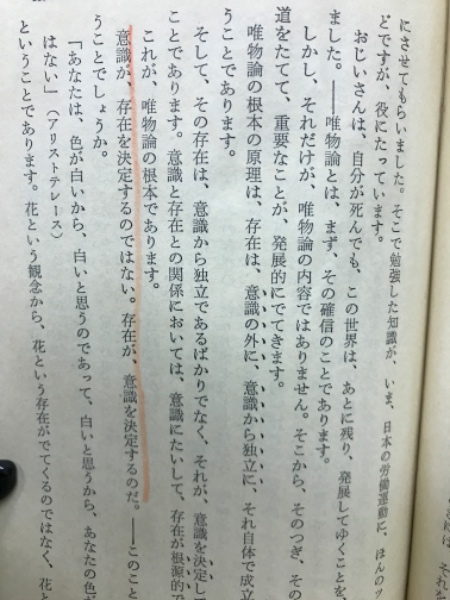 にさせてもらいました。そこで勉強した知識が、いま、日本の労働運動に、ほんのッ
どですが、役にたっています。
おじいさんは、自分が死んでも、この世界は、あとに残り、発展してゆくことを、
ました。――唯物論とは、まず、その確信のことであります。
しかし、それだけが、唯物論の内容ではありません。そこから、そのつぎ、その
道をたてて、重要なことが、発展的にでてきます。
唯物論の根本の原理は、存在は、意識の外に、意識から独立に、それ自体で成立
うことであります。
そして、その存在は、意識から独立であるばかりでなく、それが、意識を決定して
ことであります。意識と存在との関係においては、意識にたいして、存在が根源的で
これが、唯物論の根本であります。
意識が、存在を決定するのではない。存在が、意識を決定するのだ。――このこと
うことでしょうか。
「あなたは、色が白いから、白いと思うのであって、白いと思うから、あなたの色が
はない」（アリストテレース）
ということであります。花という観念から、花という存在がでてくるのではなく、花と